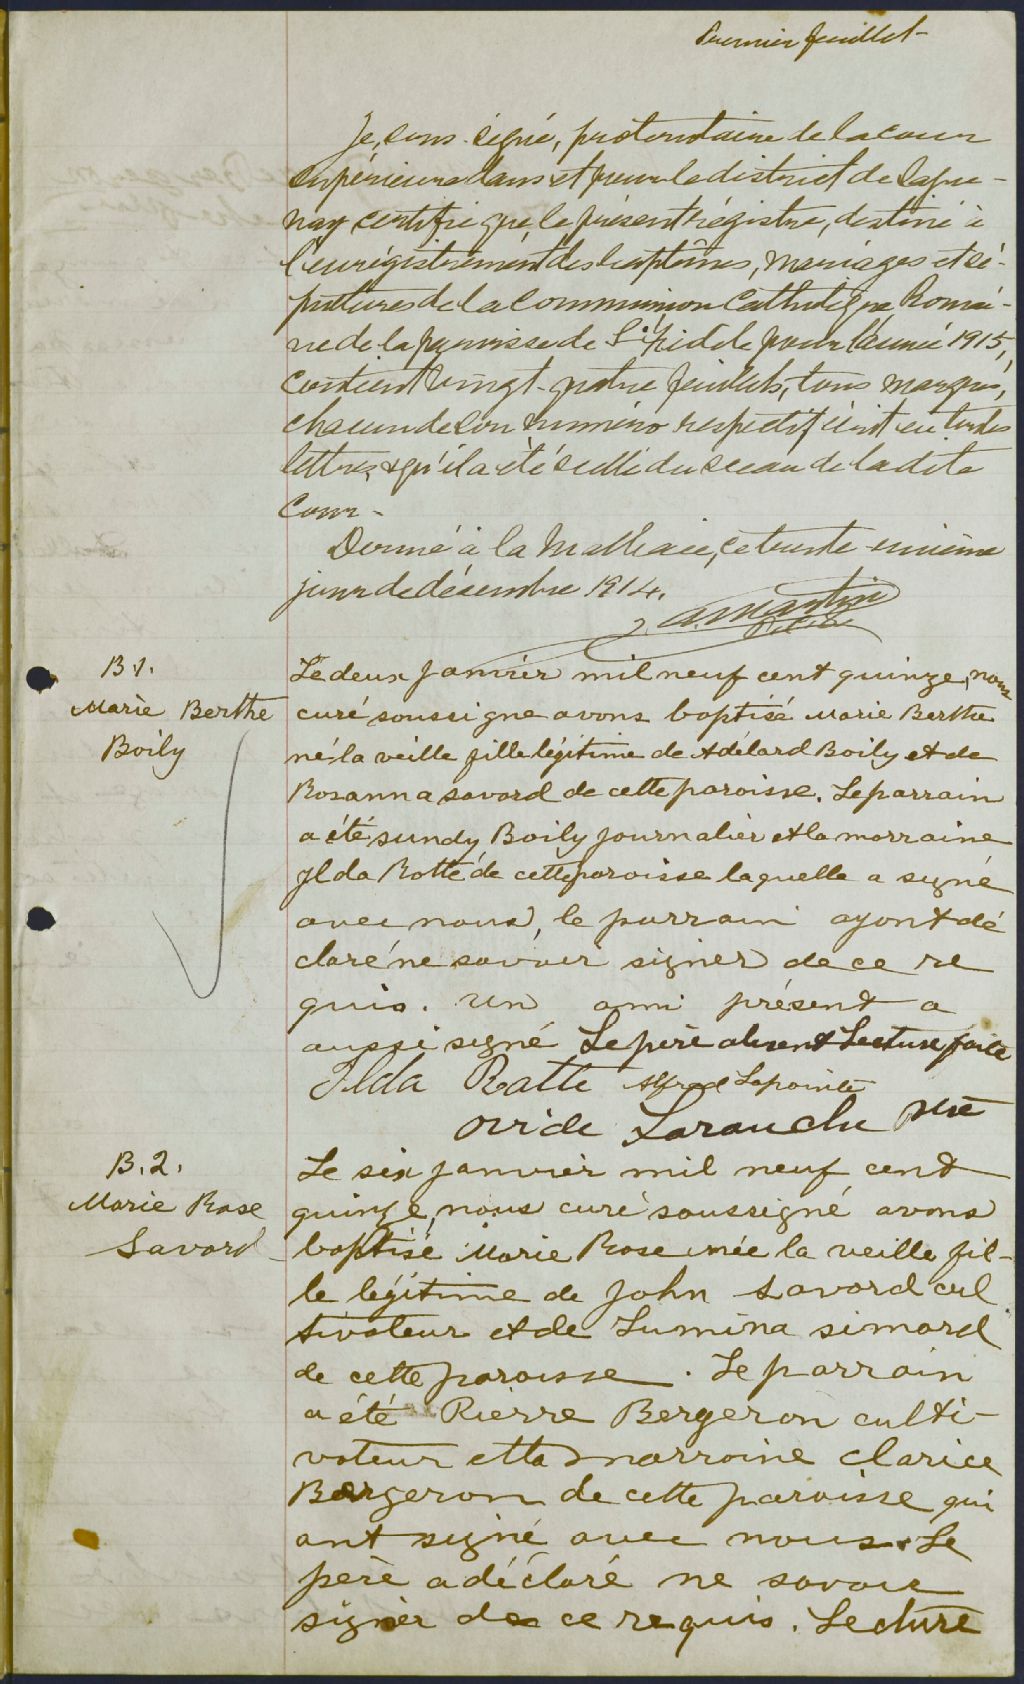 Premier feuillet
Je, sous-signé, protonotaire de la cour
supérieure dans et pour le district de Sague-
nay certifie que le présent régistre, destiné à
l'enrégistrement des baptêmes, mariages et sé-
pultures de la Communion Catholique Romai-
ne de la paroisse de St Fidèle pour l'année 1915,
contient vingt-quatre feuillets, tous marqués,
chacun de son numéro respectif écrit en toutes
lettres, & qu'il a été scellé du sceau de la dite
Cour-
Donné à la Malbaie, ce trente-unième
jour de décembre 1914.
Martin
B 1.
Marie Berthe
Boily
Le deux janvier mil neuf cent quinze, nous
curé soussigne avons baptisé Marie Berthe
né la veille fille légitime de Adélard Boily et de
Rosanna Savard de cette paroisse. Le parrain
a été sundy Boily journalier et la marraine
Ilda Rotté de cette paroisse laquelle a signé
avec nous, le parrain ayant dé
claré ne savoir signer de ce re
quis. Un ami présent a
aussi signé Le père absent Lecture faite
Ilda Ratté Alfred Lapointe
Ovide Larouche ptre
B.2.
Marie Rose
Savard
Le six janvier mil neuf cent
quinze, nous curé soussigné avons
baptisé Marie Rose née la veille fil-
le légitime de John Savard cul
tivateur et de Lumina Simard
de cette paroisse. Le parrain
a été Pierre Bergeron culti-
vateur et la marraine Clarice
Bergeron de cette paroisse qui
ont signé avec nous. Le
père a déclaré ne savoir
signer de ce requis. Lecture